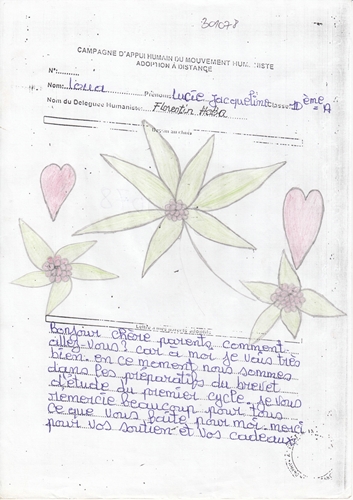 301078
CAMPAGNE D'APPUI HUMAIN DU MOUVEMENT HUMANISTE
ADOPTION A DISTANCE
N°:
Nom: Prénom: Lucie Jacqueline Classe: ème A
Nom du Délégué Humaniste: Florentin
Bonjour chère parents comment
allez-vous? car à moi je vais très
bien. en ce moment nous sommes
dans les préparatifs du brevet
d'étude du premier cycle. je vous
remercie beaucoup pour tous
ce que vous faite pour moi. merci
pour vos soutien et vos cadeaux